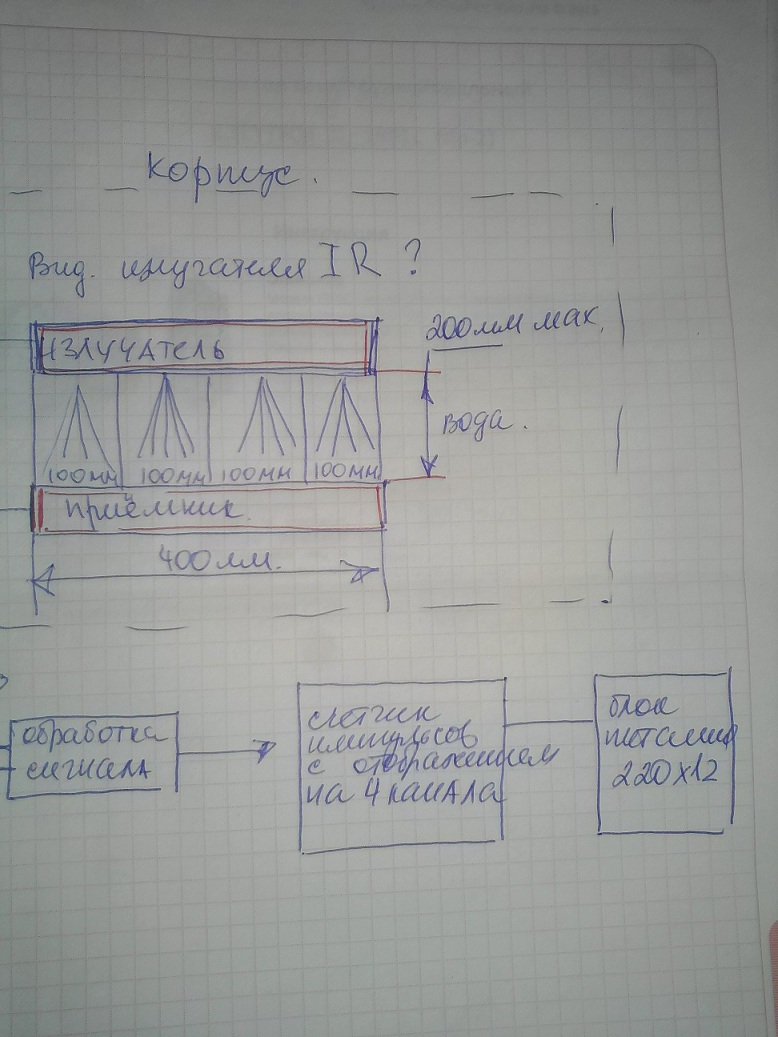 корпус.
Вид. излучателя IR ?
200мм мах.
ИЗЛУЧАТЕЛЬ
вода.
100мм 100мм 100мм 100мм
приёмник
400мм.
обработка
сигнала
счетчик
импульсов
с отображением
на 4 канала
блок
питания
220х12